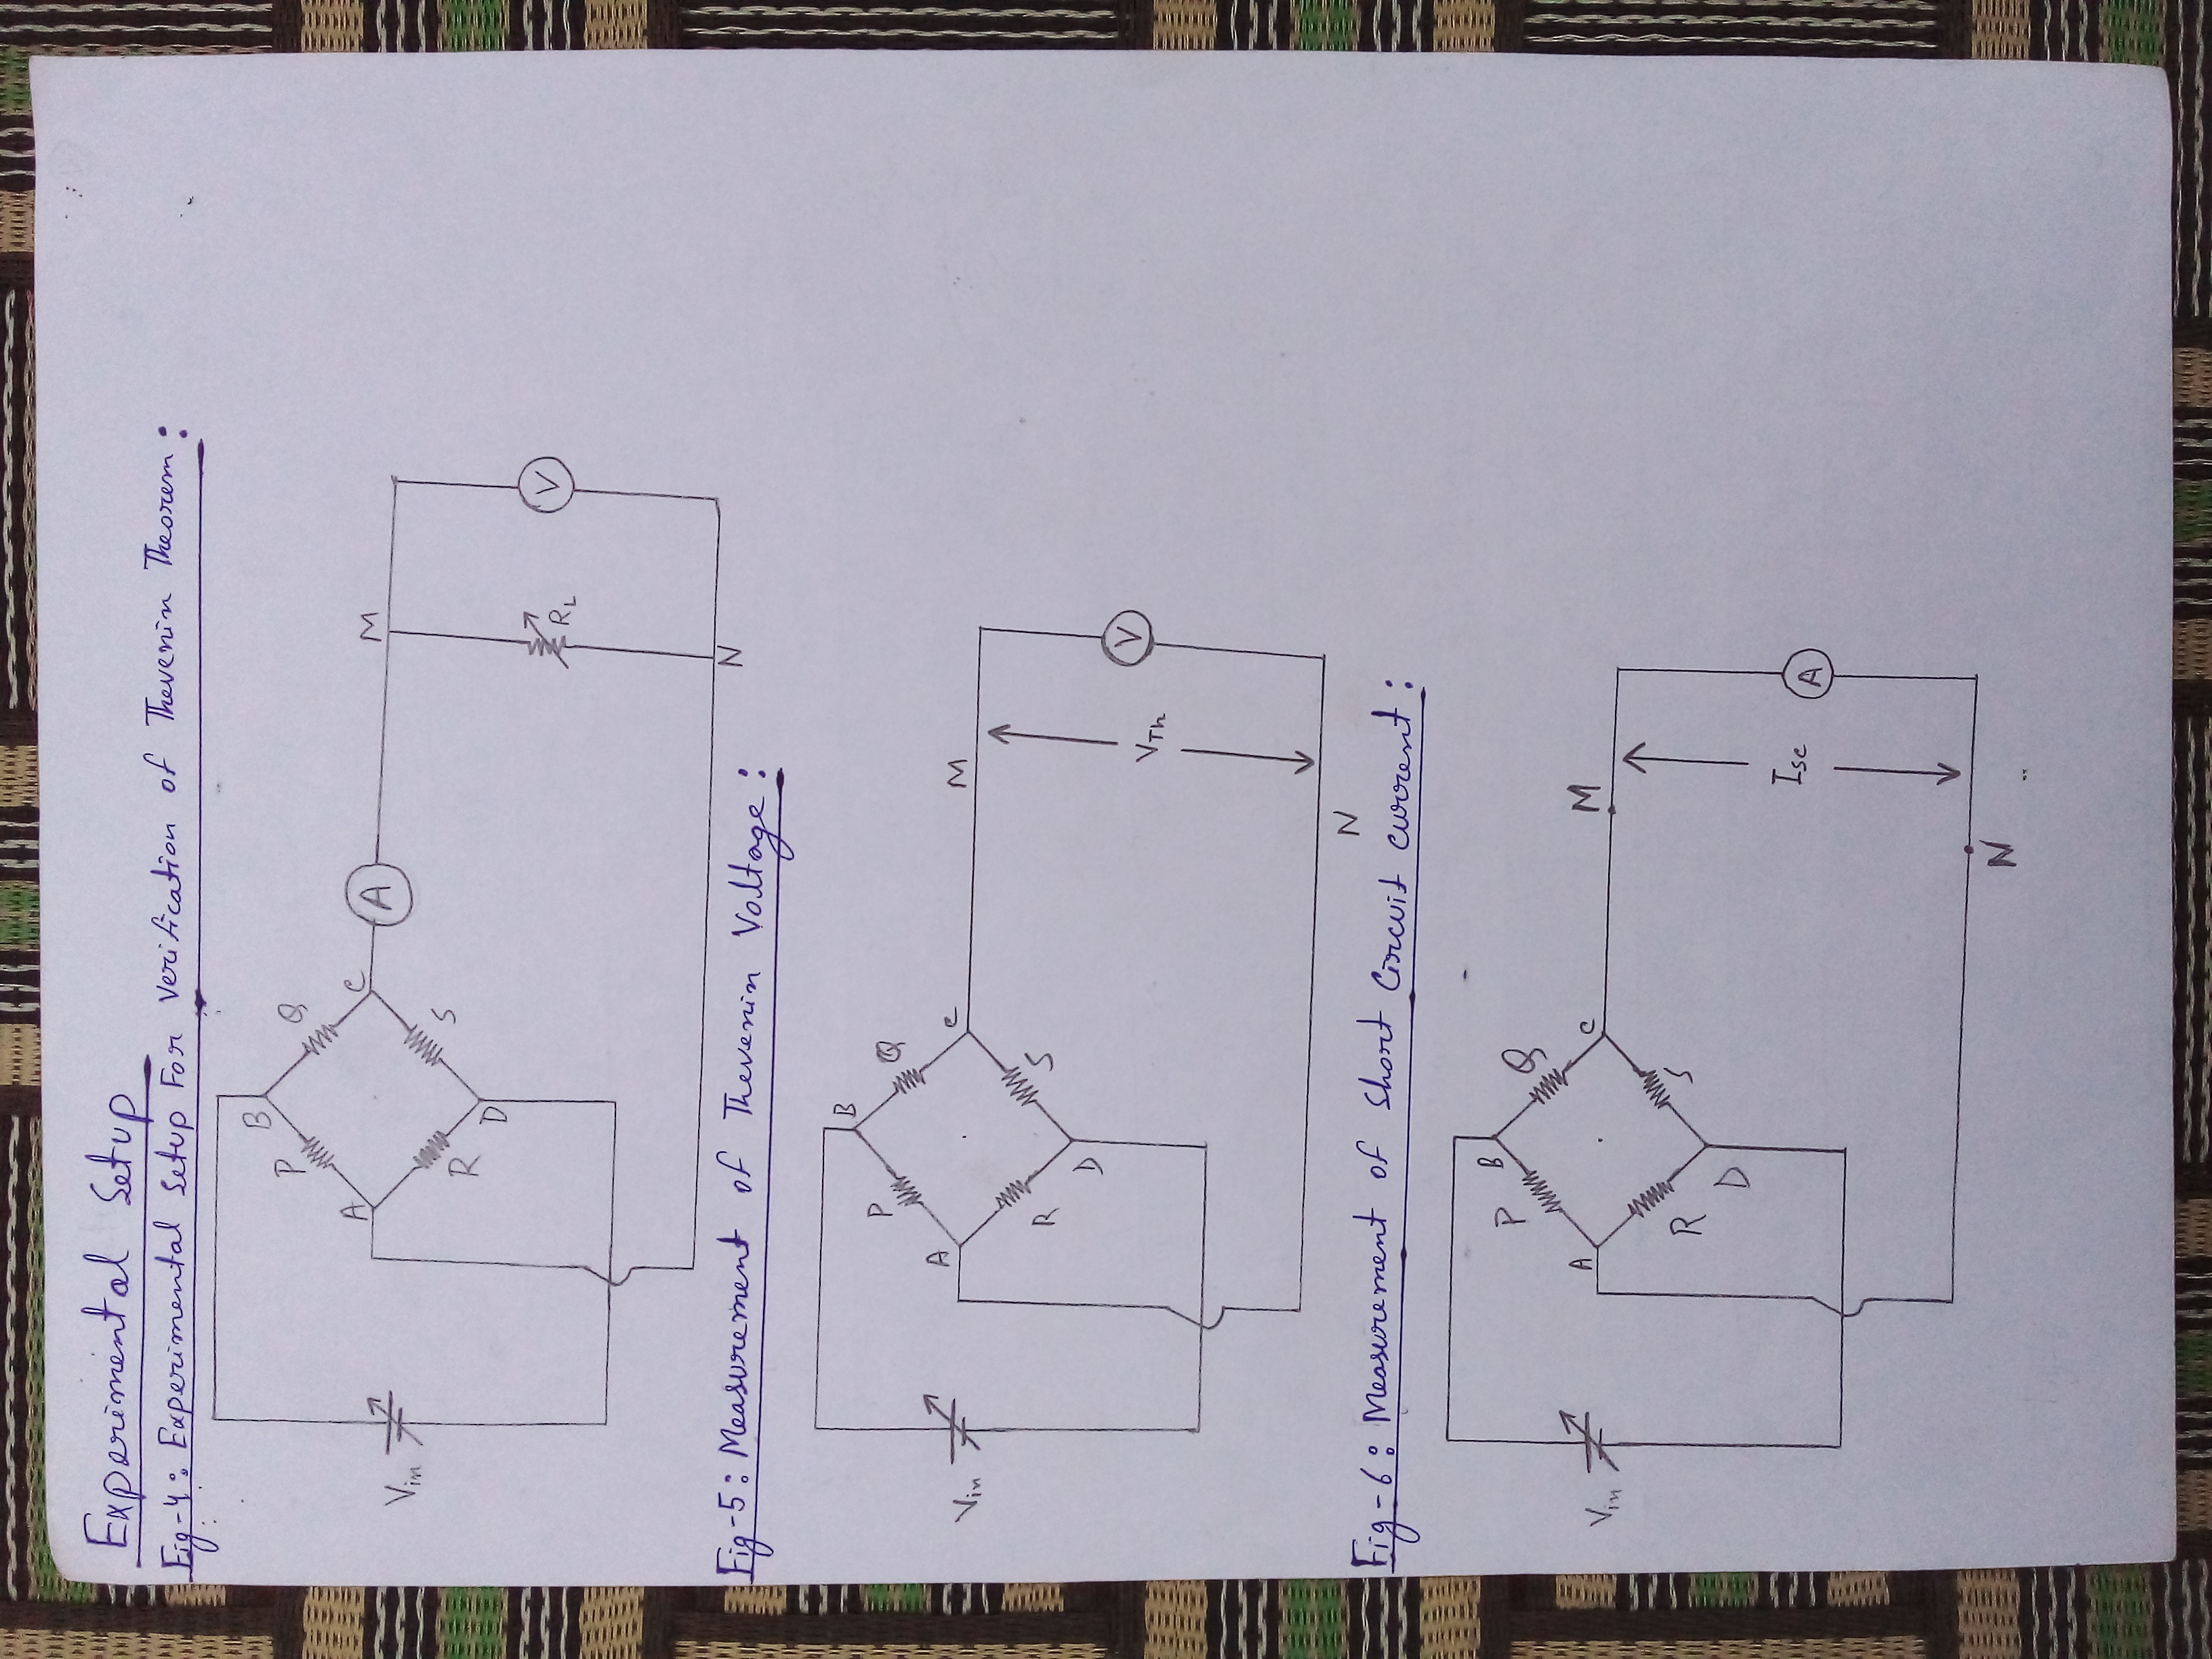 Experimental Setup
Fig-4: Experimental Setup For Verification of Thevenin Theorem:
B
P
Q
A
C
A
M
Vin
R
S
D
RL
V
N
Fig-5: Measurement of Thevenin Voltage:
B
P
Q
A
C
M
Vin
R
S
D
VTh
V
N
Fig-6: Measurement of Short Circuit Current:
B
P
Q
A
C
M
Vin
R
S
D
Isc
A
N